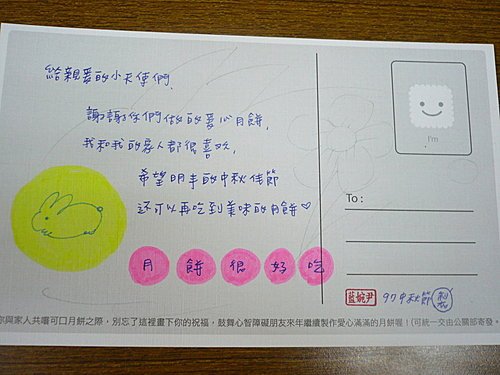 給親愛的小天使們,
謝謝你們做的愛心月餅,
我和我的家人都很喜欢,
希望明年的中秋佳節
还可以再吃到美味的月餅♡
月餅很好吃
I'm
To:
藍婉尹
97中秋節
你與家人共嚐可口月餅之際,別忘了這裡畫下你的祝福,鼓舞心智障礙朋友來年繼續製作愛心滿滿的月餅喔!(可統一交由公關部寄發。